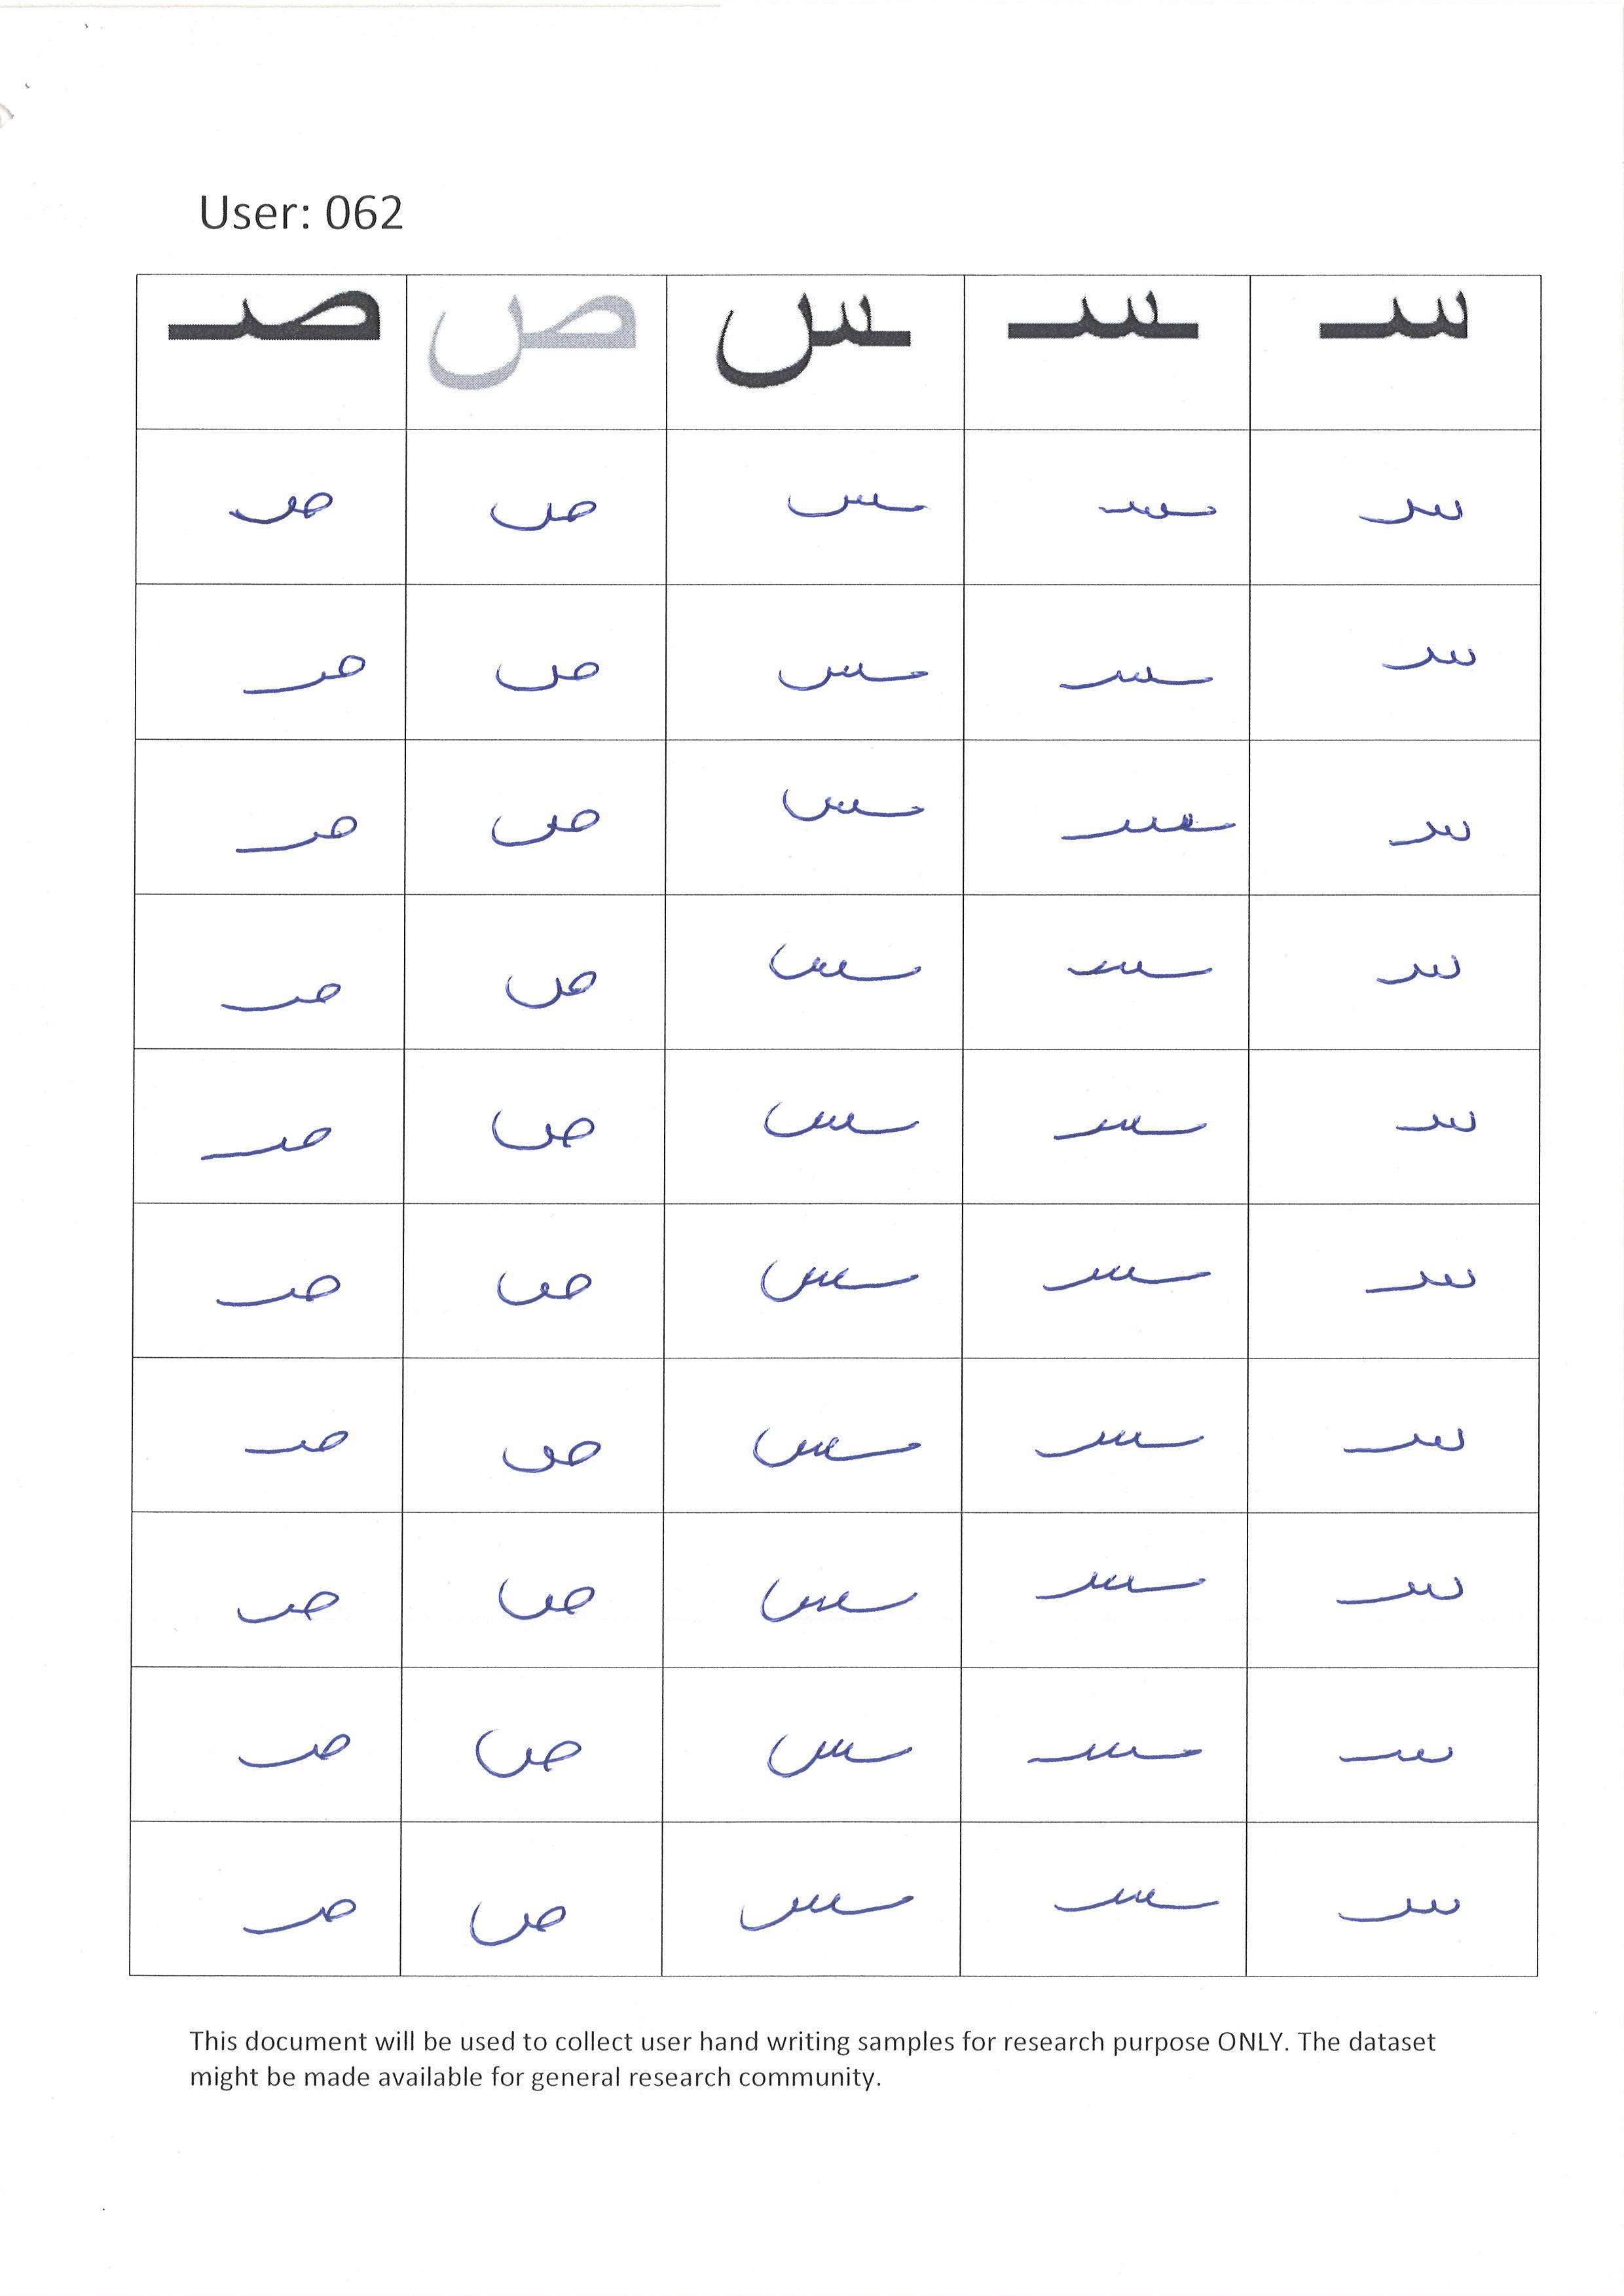 User: 062
سـ ـسـ ـس ص صـ
سـ ـسـ ـس ص صـ
سـ ـسـ ـس ص صـ
سـ ـسـ ـس ص صـ
سـ ـسـ ـس ص صـ
سـ ـسـ ـس ص صـ
سـ ـسـ ـس ص صـ
سـ ـسـ ـس ص صـ
سـ ـسـ ـس ص صـ
سـ ـسـ ـس ص صـ
سـ ـسـ ـس ص صـ
This document will be used to collect user hand writing samples for research purpose ONLY. The dataset
might be made available for general research community.